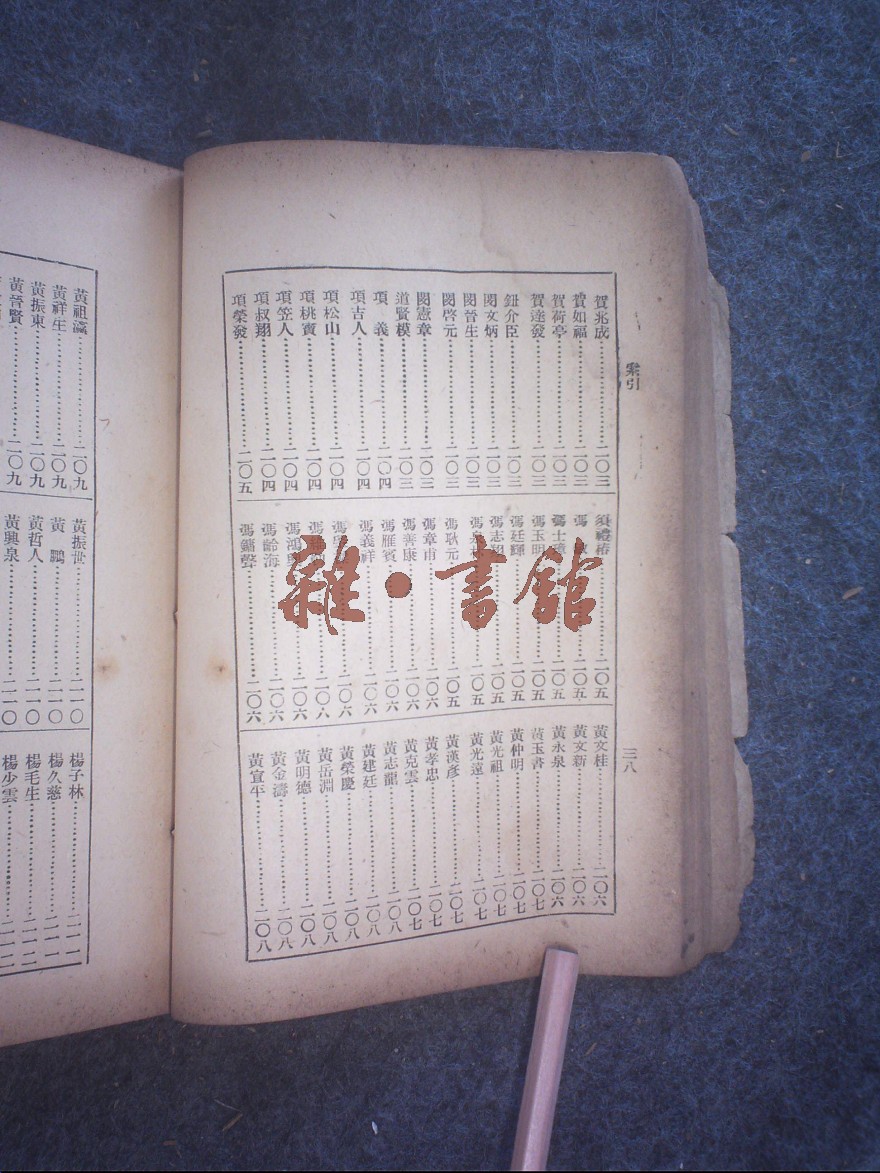 索引
三八
賀兆成⋯⋯二〇三
賀如福⋯⋯二〇三
賀荷亭⋯⋯二〇三
賀達發⋯⋯二〇三
鈕介臣⋯⋯二〇三
閔文炳⋯⋯二〇三
閔晉生⋯⋯二〇三
閔啓元⋯⋯二〇三
閔憲章⋯⋯二〇三
道賢模⋯⋯二〇三
項義⋯⋯二〇四
項吉人⋯⋯二〇四
項松山⋯⋯二〇四
項桃賓⋯⋯二〇四
項笠人⋯⋯二〇四
項叔翔⋯⋯二〇四
項榮發⋯⋯二〇五
須禮椿⋯⋯二〇五
馮⋯⋯二〇五
馮士璋⋯⋯二〇五
馮玉明⋯⋯二〇五
馮廷輝⋯⋯二〇五
馮志⋯⋯二〇五
馮⋯⋯二〇五
馮耿元⋯⋯二〇五
馮章甫⋯⋯二〇六
馮善康⋯⋯二〇六
馮雁賓⋯⋯二〇六
馮義祥⋯⋯二〇六
馮⋯⋯二〇六
馮⋯⋯二〇六
馮鴻⋯⋯二〇六
馮齡海⋯⋯二〇六
馮鏞聲⋯⋯二〇六
黃文桂⋯⋯二〇六
黃文新⋯⋯二〇六
黃永泉⋯⋯二〇六
黃玉書⋯⋯二〇七
黃仲明⋯⋯二〇七
黃光祖⋯⋯二〇七
黃光遠⋯⋯二〇七
黃漢彥⋯⋯二〇七
黃孝忠⋯⋯二〇七
黃克雲⋯⋯二〇七
黃志龍⋯⋯二〇八
黃建廷⋯⋯二〇八
黃榮慶⋯⋯二〇八
黃岳淵⋯⋯二〇八
黃明德⋯⋯二〇八
黃金濤⋯⋯二〇八
黃宣平⋯⋯二〇八
黃祖⋯⋯二〇九
黃祥生⋯⋯二〇九
黃振東⋯⋯二〇九
黃晉賢⋯⋯二〇九
黃振世⋯⋯二一〇
黃鵬⋯⋯二一〇
黃哲人⋯⋯二一〇
黃興泉⋯⋯二一〇
楊子林
楊久慈
楊毛生
楊少雲
雜·書館